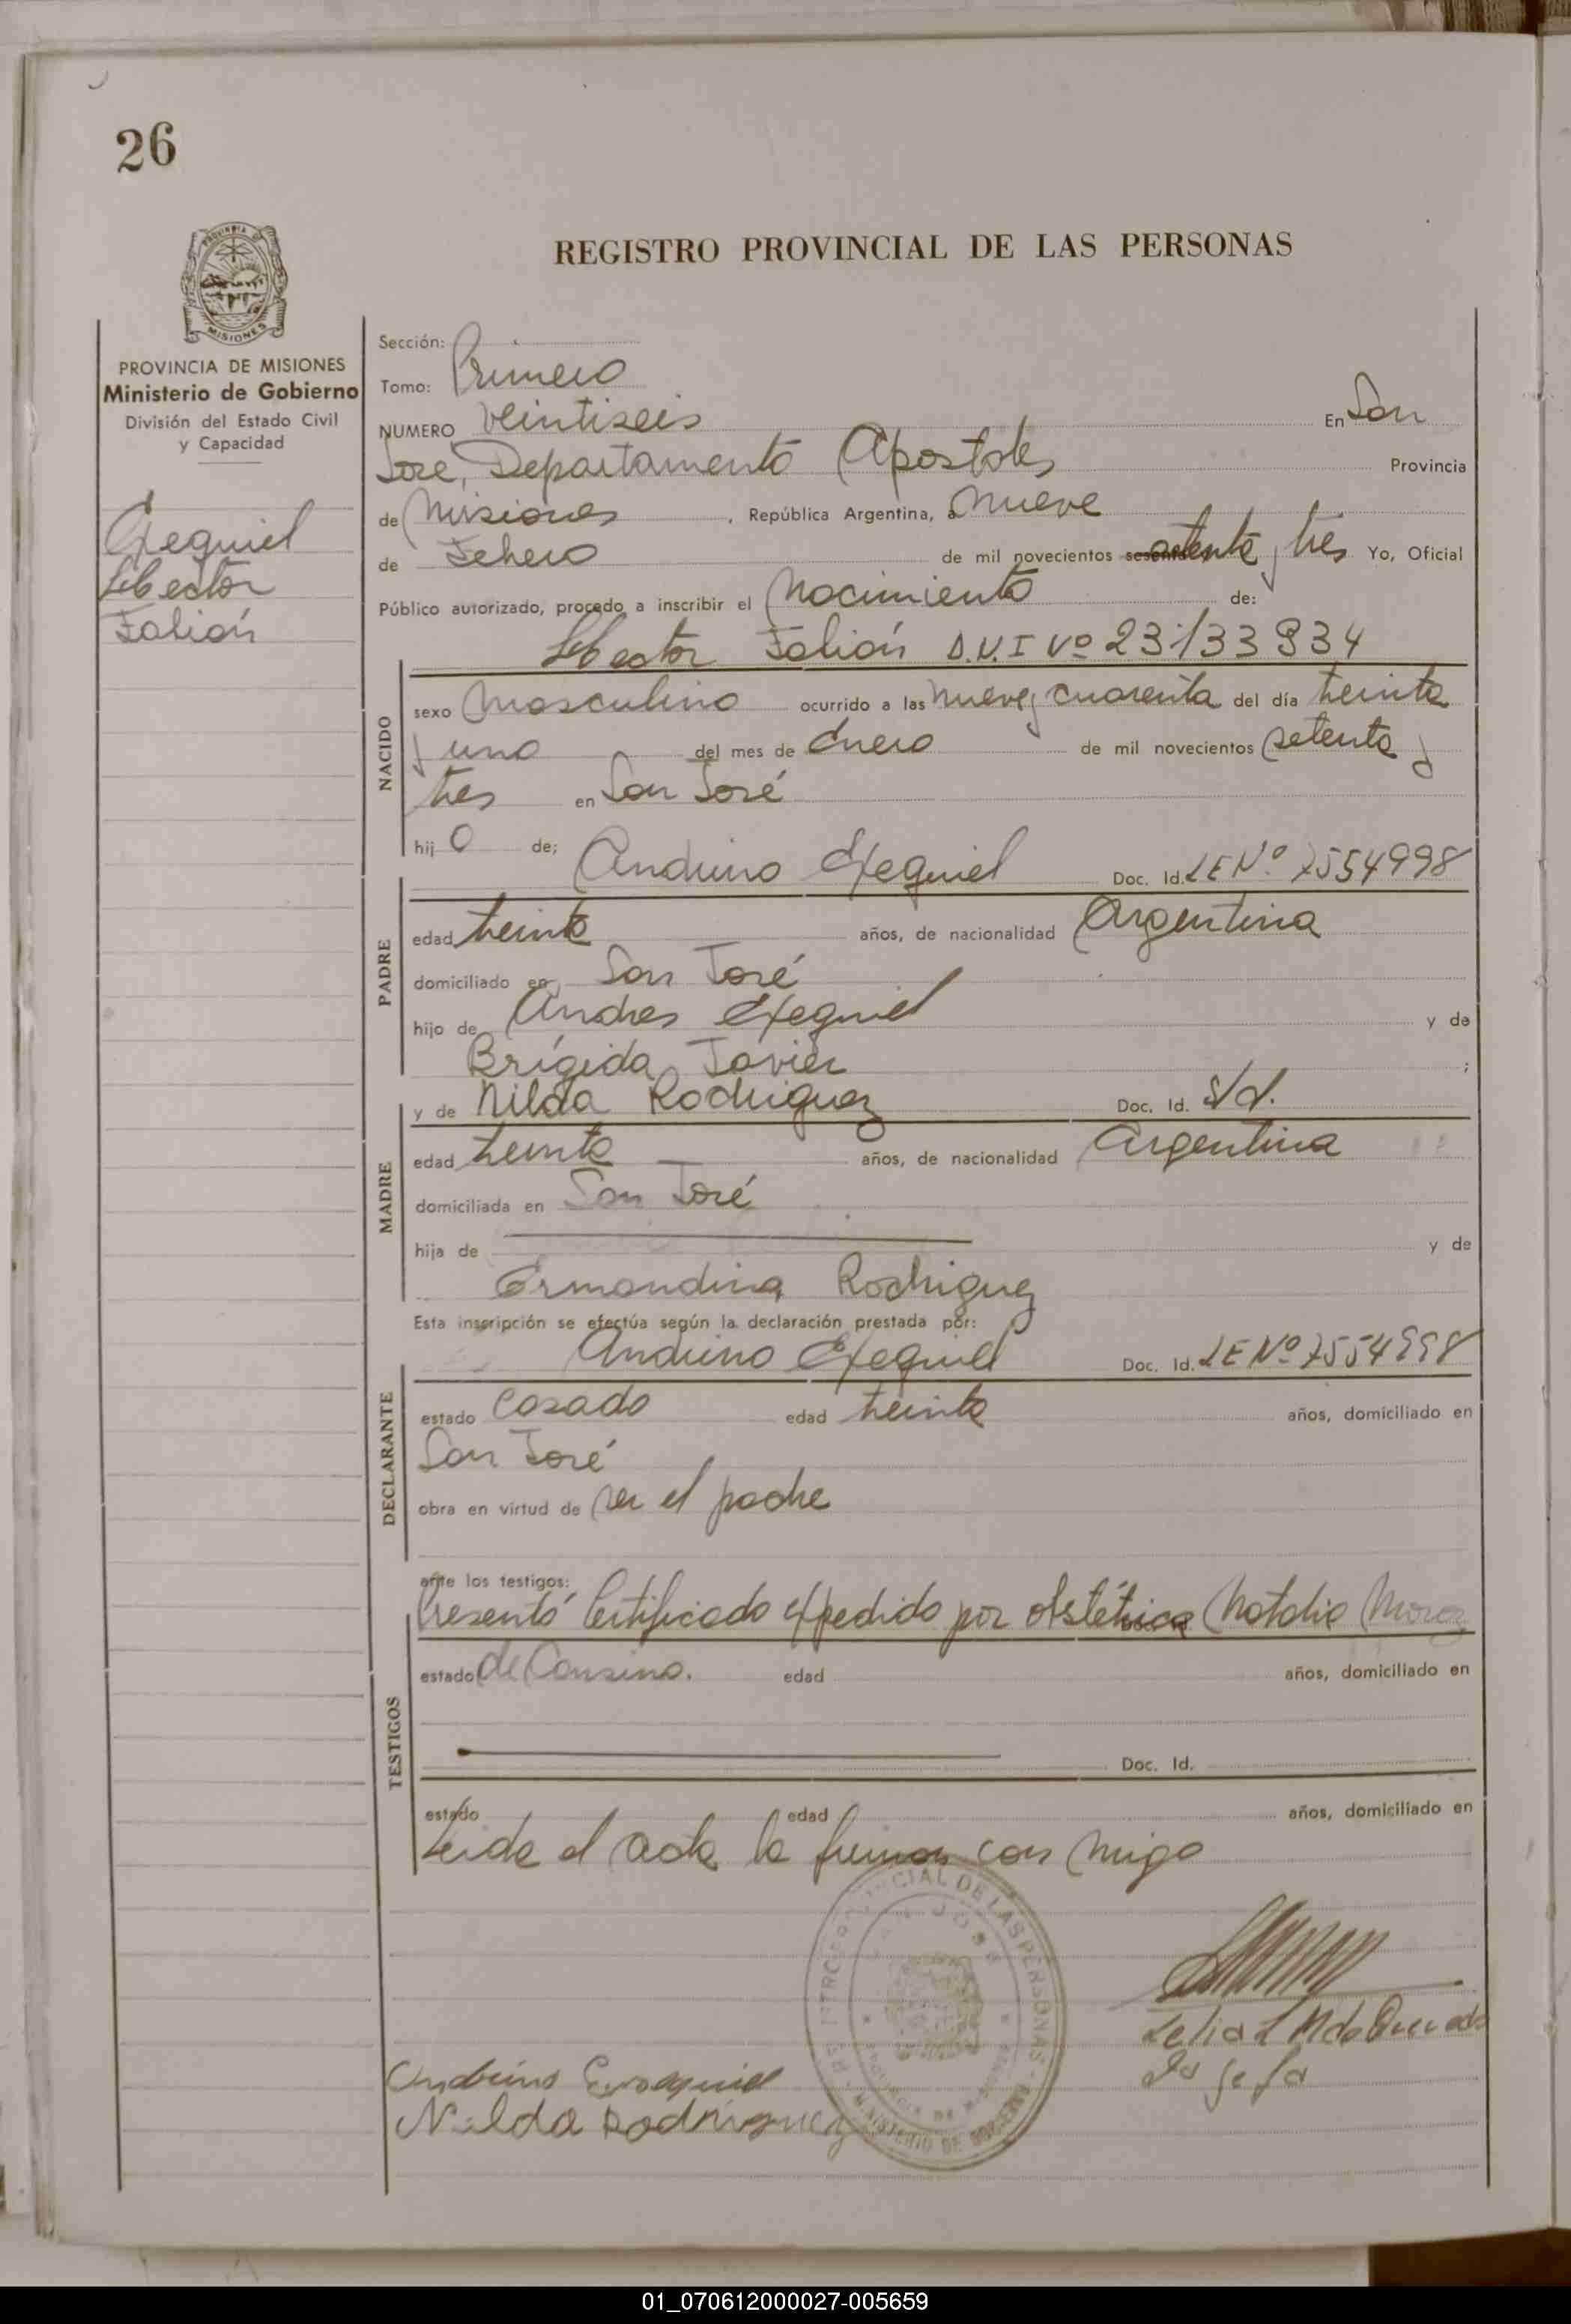 26
REGISTRO PROVINCIAL DE LAS PERSONAS
PROVINCIA DE MISIONES
Ministerio de Gobierno
División del Estado Civil
y Capacidad
Exequiel
Hector
Fabián
Sección:
Tomo: Primero
NUMERO veintiseis En San
José, Departamento Apostoles Provincia
de Misiones, República Argentina, a nueve
de Febrero de mil novecientos sesenta setenta y tres Yo, Oficial
Público autorizado, procedo a inscribir el Nacimiento de:
Hector Fabián D.N.I Nº 23133934
NACIDO
sexo masculino ocurrido a las nueve y cuarenta del día treinta
y uno del mes de Enero de mil novecientos setenta y
tres en San José
hijo de; Anduino Exequiel Doc. Id. LE Nº 7554998
PADRE
edad treinta años, de nacionalidad Argentina
domiciliado en San José
hijo de Andres Exequiel y de
Brígida Javier ;
y de Nilda Rodriguez Doc. Id. s/d.
MADRE
edad treinta años, de nacionalidad Argentina
domiciliada en San José
hija de y de
Ermandina Rodriguez
Esta inscripción se efectúa según la declaración prestada por:
Anduino Exequiel Doc. Id. LE Nº 7554998
DECLARANTE
estado casado edad treinta años, domiciliado en
San José
obra en virtud de ser el padre
ante los testigos:
Presentó Certificado expedido por obstétrica Natalia Moroz
TESTIGOS
estado de Cansino. edad años, domiciliado en
Doc. Id.
estado edad años, domiciliado en
Leida el acta la firman con migo
PROVINCIAL DE LAS PERSONAS
MINISTERIO DE GOBIERNO
Exequiel
Nilda Rodriguez
Lelia L M de
Jefa
01_070612000027-005659